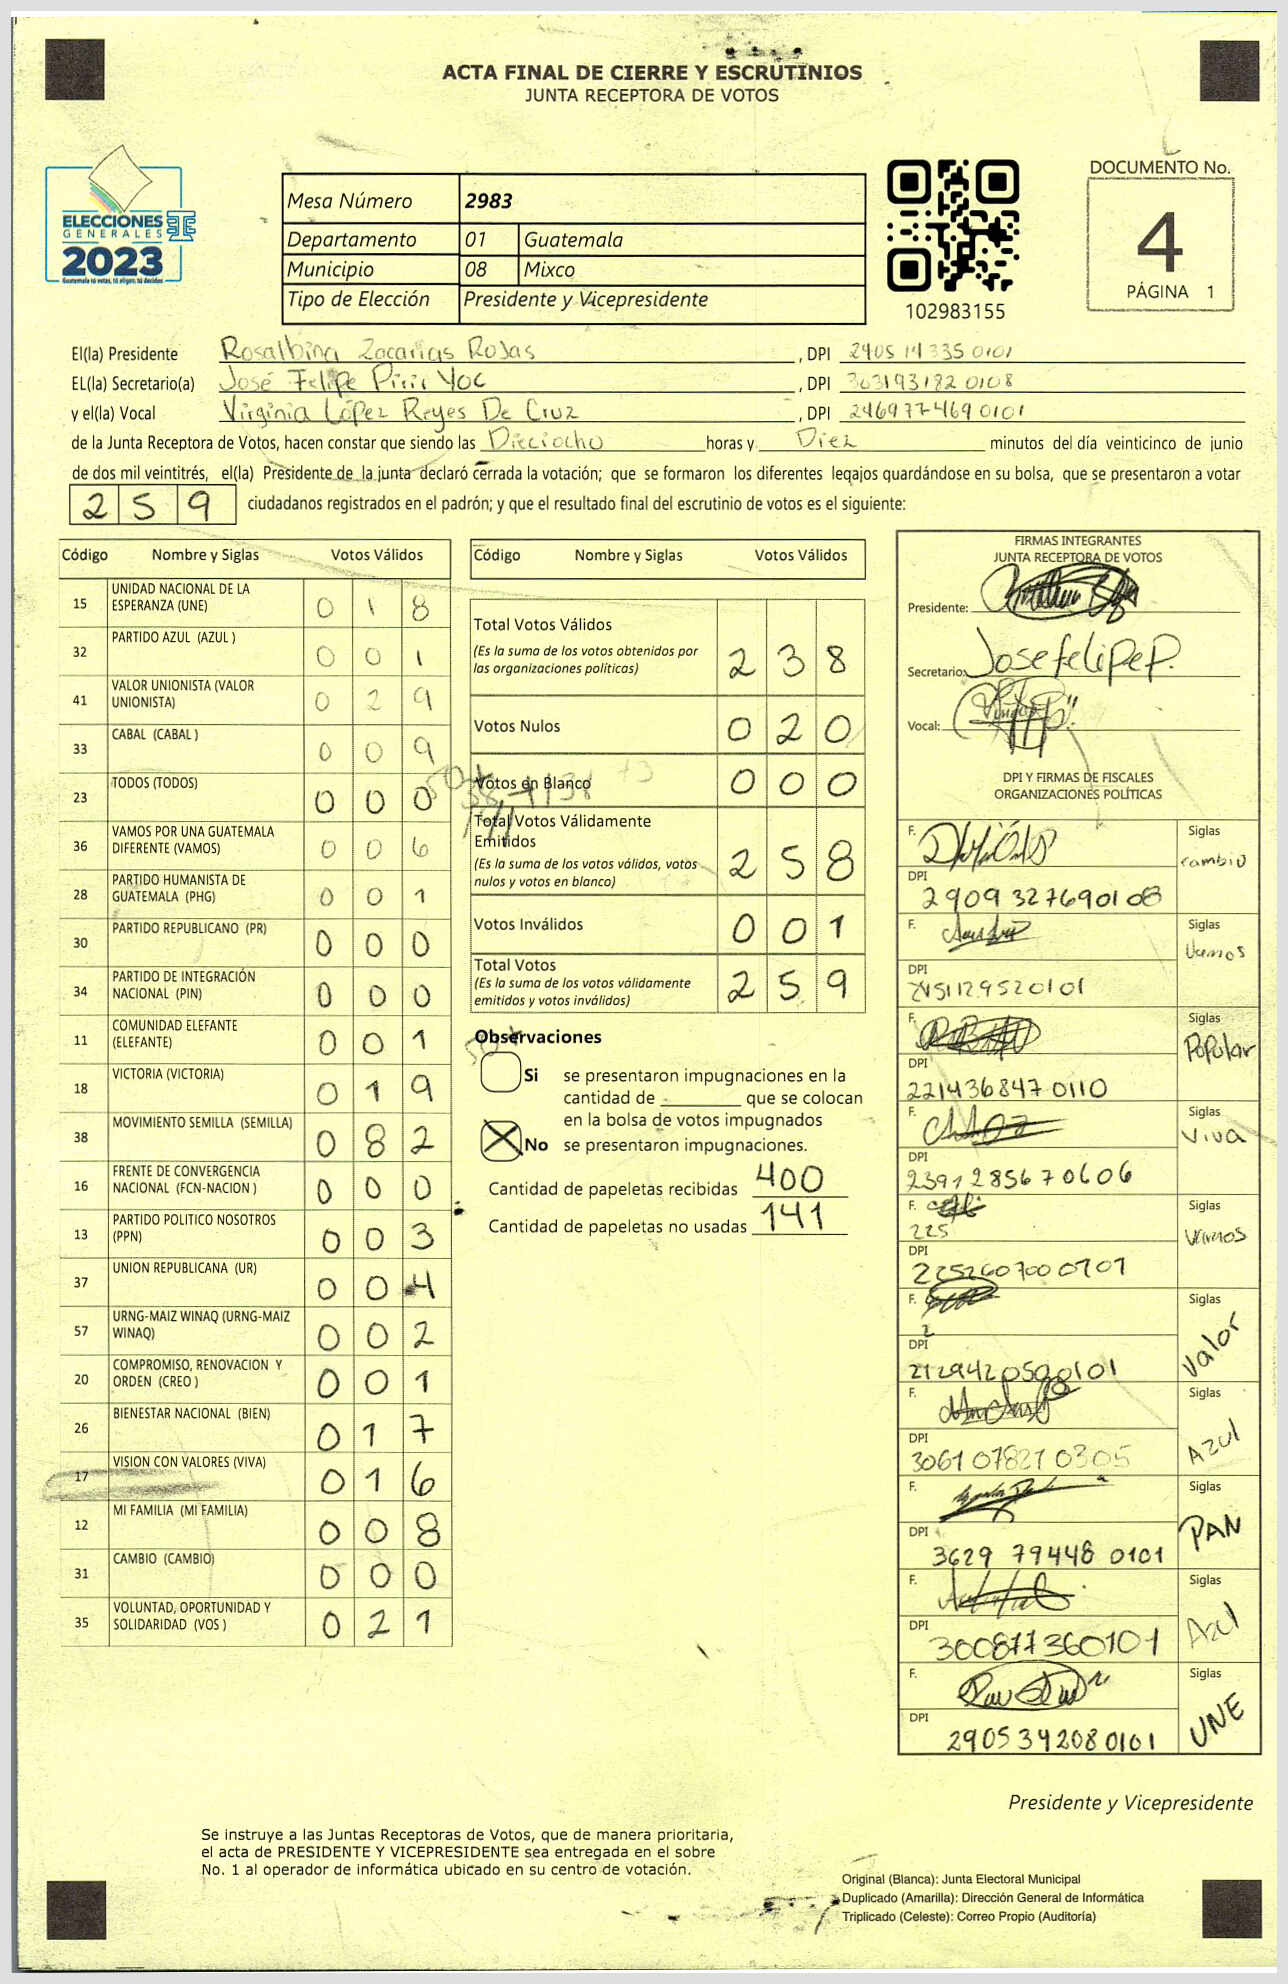 ACTA FINAL DE CIERRE Y ESCRUTINIOS
JUNTA RECEPTORA DE VOTOS
ELECCIONES
GENERALES
2023
Guatemala tú votas, tú eliges, tú decides
Mesa Número 2983
Departamento 01 Guatemala
Municipio 08 Mixco
Tipo de Elección Presidente y Vicepresidente
102983155
DOCUMENTO No.
4
PÁGINA 1
El(la) Presidente Rosalbina Zacarias Rojas , DPI 2905 14335 0101
EL(la) Secretario(a) José Felipe Pirir Yoc , DPI 303193182 0108
y el(la) Vocal Virginia López Reyes De Cruz , DPI 246977469 0101
de la Junta Receptora de Votos, hacen constar que siendo las Dieciocho horas y Diez minutos del día veinticinco de junio
de dos mil veintitrés, el(la) Presidente de la junta declaró cerrada la votación; que se formaron los diferentes legajos guardándose en su bolsa, que se presentaron a votar
259 ciudadanos registrados en el padrón; y que el resultado final del escrutinio de votos es el siguiente:
Código Nombre y Siglas Votos Válidos
15 UNIDAD NACIONAL DE LA ESPERANZA (UNE) 018
32 PARTIDO AZUL (AZUL ) 001
41 VALOR UNIONISTA (VALOR UNIONISTA) 029
33 CABAL (CABAL ) 009
23 TODOS (TODOS) 000
36 VAMOS POR UNA GUATEMALA DIFERENTE (VAMOS) 006
28 PARTIDO HUMANISTA DE GUATEMALA (PHG) 001
30 PARTIDO REPUBLICANO (PR) 000
34 PARTIDO DE INTEGRACIÓN NACIONAL (PIN) 000
11 COMUNIDAD ELEFANTE (ELEFANTE) 001
18 VICTORIA (VICTORIA) 019
38 MOVIMIENTO SEMILLA (SEMILLA) 082
16 FRENTE DE CONVERGENCIA NACIONAL (FCN-NACION ) 000
13 PARTIDO POLITICO NOSOTROS (PPN) 003
37 UNION REPUBLICANA (UR) 004
57 URNG-MAIZ WINAQ (URNG-MAIZ WINAQ) 002
20 COMPROMISO, RENOVACION Y ORDEN (CREO ) 001
26 BIENESTAR NACIONAL (BIEN) 017
17 VISION CON VALORES (VIVA) 016
12 MI FAMILIA (MI FAMILIA) 008
31 CAMBIO (CAMBIO) 000
35 VOLUNTAD, OPORTUNIDAD Y SOLIDARIDAD (VOS ) 021
Código Nombre y Siglas Votos Válidos
Total Votos Válidos
(Es la suma de los votos obtenidos por
las organizaciones políticas) 238
Votos Nulos 020
Votos en Blanco 000
Total Votos Válidamente
Emitidos
(Es la suma de los votos válidos, votos
nulos y votos en blanco) 258
Votos Inválidos 001
Total Votos
(Es la suma de los votos válidamente
emitidos y votos inválidos) 259
Observaciones
Si se presentaron impugnaciones en la
cantidad de ________ que se colocan
en la bolsa de votos impugnados
No se presentaron impugnaciones.
Cantidad de papeletas recibidas 400
Cantidad de papeletas no usadas 141
FIRMAS INTEGRANTES
JUNTA RECEPTORA DE VOTOS
Presidente:
Secretario: Jose felipe P.
Vocal:
DPI Y FIRMAS DE FISCALES
ORGANIZACIONES POLÍTICAS
F. Siglas cambio
DPI 2909 32769 0108
F. Siglas Vamos
DPI 245112952 0101
F. Siglas Popular
DPI 221436847 0110
F. Siglas Viva
DPI 2391 28567 0606
F. 225 Siglas Vamos
DPI 225260700 0101
F. Siglas Valor
DPI 212942050 0101
F. Siglas Azul
DPI 3061 07821 0305
F. Siglas PAN
DPI 3629 79448 0101
F. Siglas Azul
DPI 300877360101
F. Siglas UNE
DPI 2905 34208 0101
Presidente y Vicepresidente
Se instruye a las Juntas Receptoras de Votos, que de manera prioritaria,
el acta de PRESIDENTE Y VICEPRESIDENTE sea entregada en el sobre
No. 1 al operador de informática ubicado en su centro de votación.
Original (Blanca): Junta Electoral Municipal
Duplicado (Amarilla): Dirección General de Informática
Triplicado (Celeste): Correo Propio (Auditoría)